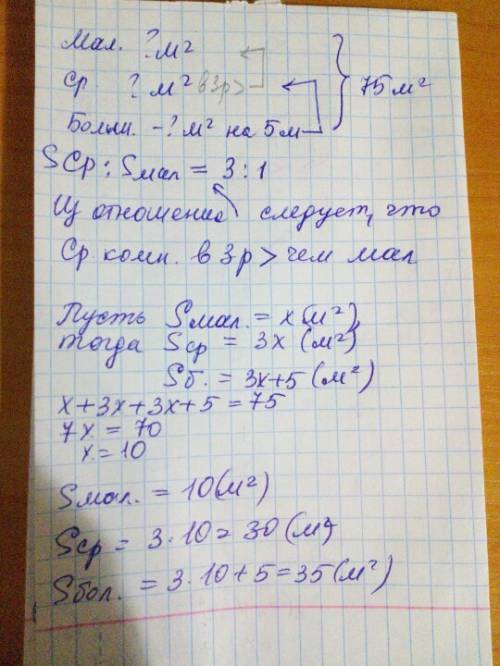 Мал. ? м²
Ср ? м² в 3р > 75 м²
Больш. - ? м² на 5м
Sср : Sмал = 3 : 1
Из отношение следует, что
Ср комн. в 3р > чем мал
Пусть Sмал. = x (м²)
тогда Sср = 3x (м²)
Sб. = 3x+5 (м²)
x+3x+3x+5 = 75
7x = 70
x = 10
Sмал. = 10 (м²)
Sср = 3 · 10 = 30 (м²
Sбол. = 3 · 10 + 5 = 35 (м²)